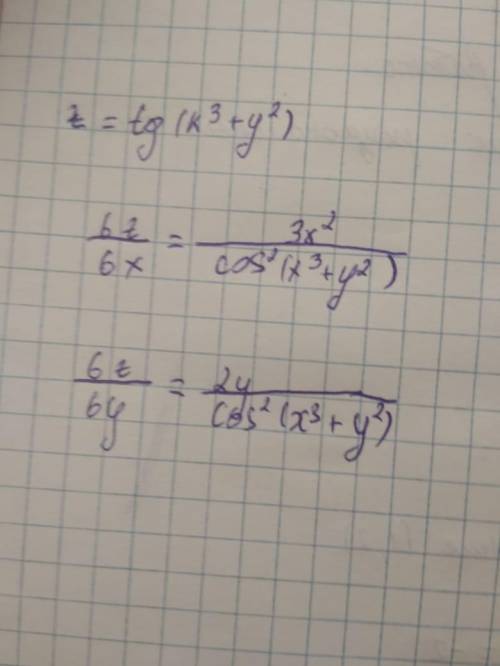 z = tg(x³+y²)
бz/бx = 3x²/cos²(x³+y²)
бz/бy = 2y/cos²(x³+y²)